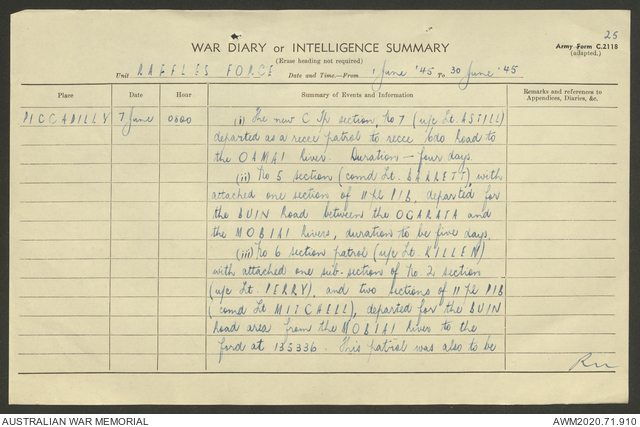 25
WAR DIARY or INTELLIGENCE SUMMARY
Army Form C.2118
(adapted.)
(Erase heading not required)
Unit RAFFLES FORCE Date and Time.—From 1 June '45 To 30 June '45
Place Date Hour Summary of Events and Information Remarks and references to
Appendices, Diaries, &c.
PICCADILLY 7 June 0800 (i) The new C Tp section, No 7 (u/c Lt. ASTILL)
departed as a recce patrol to recce Road to
the OAMAI River. Duration — four days.
(ii) No 5 section (comd Lt. BARRETT), with
attached one section of 11 Pl PIB, departed for
the BUIN Road between the OGARATA and
the MOBIAI Rivers, duration to be five days.
(iii) No 6 section patrol (u/c Lt. KILLEN)
with attached one sub-section of No. 2 section
(u/c Lt. PERRY), and two sections of 11 Pl PIB
(comd Lt MITCHELL), departed for the BUIN
Road area from the MOBIAI River to the
ford at 135336. This patrol was also to be
AUSTRALIAN WAR MEMORIAL
AWM2020.71.910